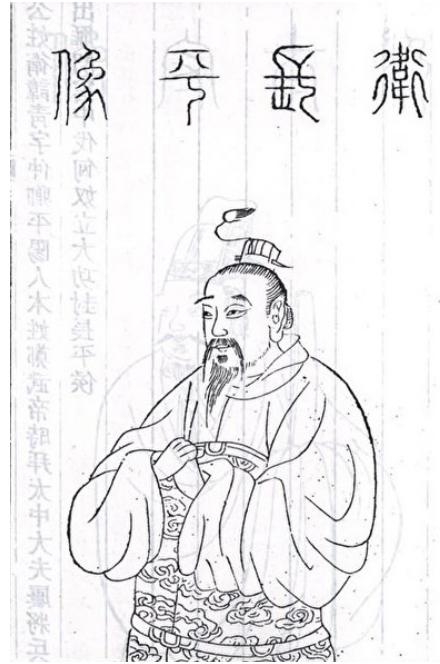 衛長平像
公姓衛諱青字仲卿平陽人本姓鄭武帝時拜太中大夫屢將兵
出 伐匈奴立大功封長平侯